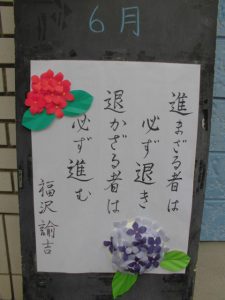 6月
進まざる者は
必ず退き
退かざる者は
必ず進む
福沢諭吉